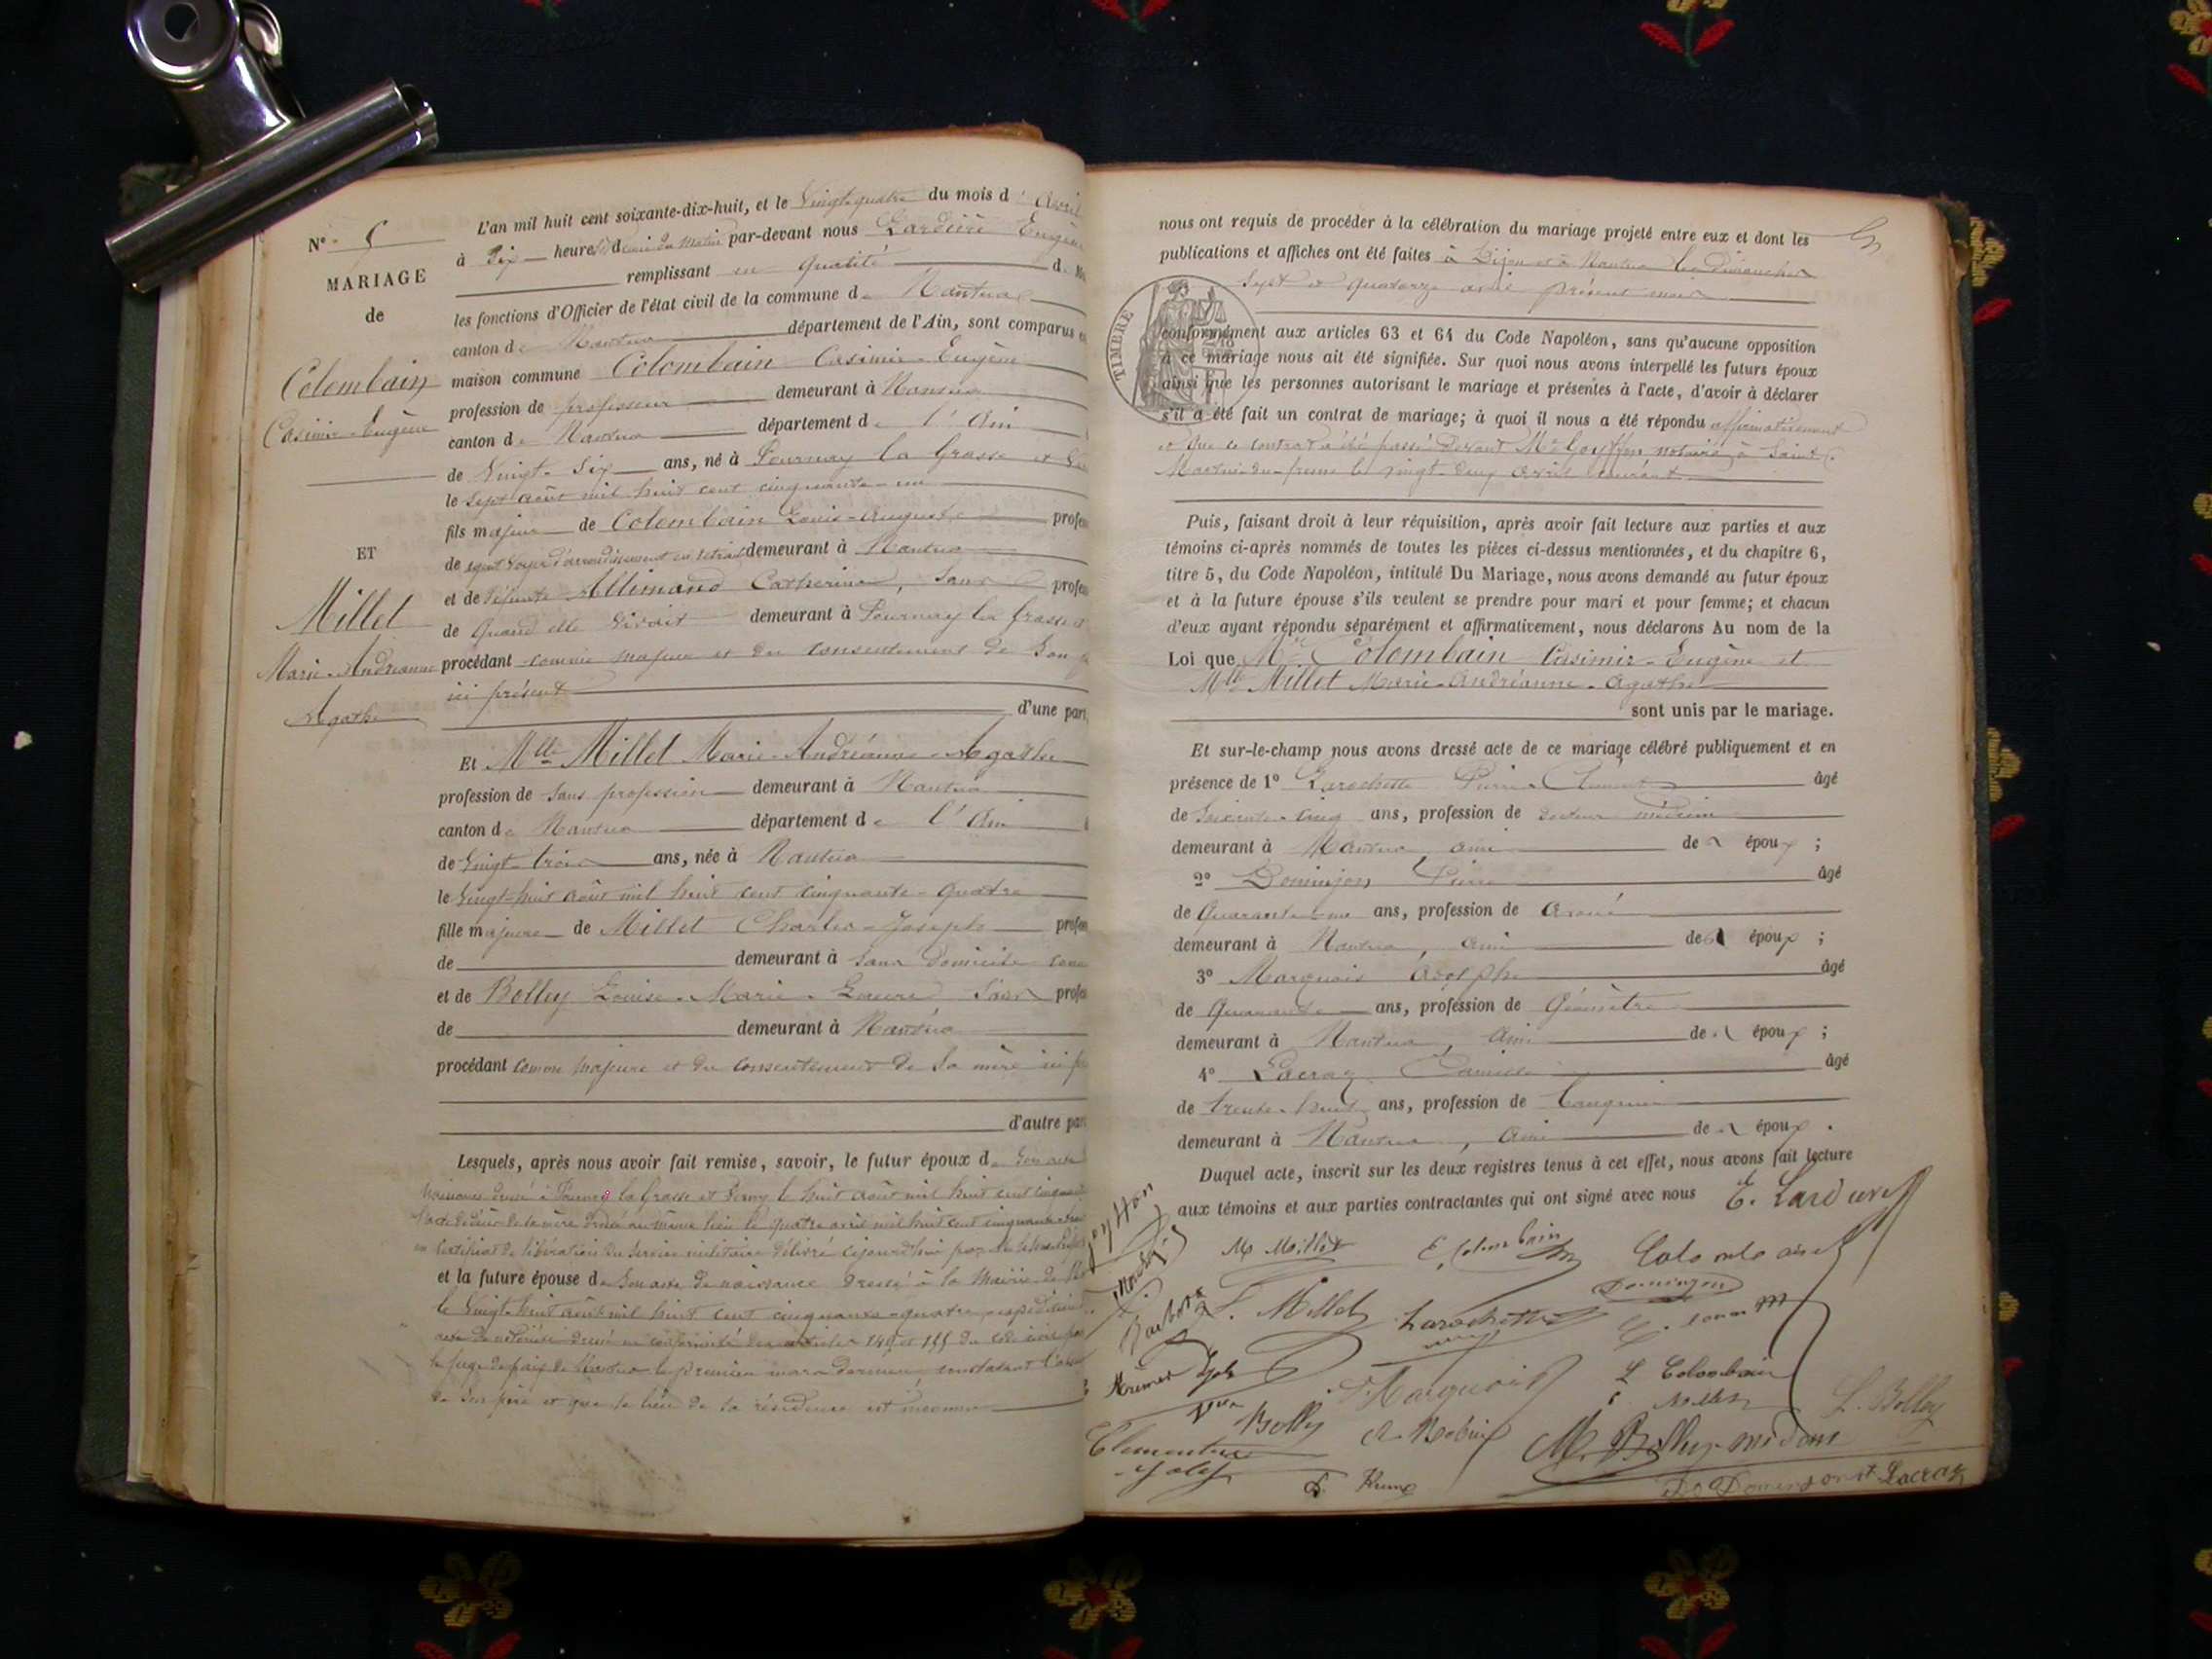 N° 5
MARIAGE
de
Colombain
Casimir-Eugène
ET
Millet
Marie-Andréanne
Agathe
L'an mil huit cent soixante-dix-huit, et le Vingt-quatre du mois d'Avril
à Dix heures & demie du Matin par-devant nous Eugène
remplissant en qualité d
les fonctions d'Officier de l'état civil de la commune de Nantua
canton de Nantua département de l'Ain, sont comparus en
maison commune Colombain Casimir-Eugène
profession de professeur demeurant à Nantua
canton de Nantua département de l'Ain
de Vingt-Six ans, né à la Grasse et
le Sept août mil huit cent cinquante-un
fils majeur de Colombain Louis-Auguste profes
de agent Voyer d'arrondissement en retraite demeurant à Nantua
et de défunte Allemand Catherine, Sans profes
de Quand elle Vivait demeurant à la Grasse
procédant comme majeur et du consentement de Son p
ici présent
d'une part,
Et Mlle Millet Marie-Andréanne-Agathe
profession de Sans profession demeurant à Nantua
canton de Nantua département de l'Ain
de Vingt-trois ans, née à Nantua
le Vingt-huit août mil huit cent cinquante-quatre
fille majeure de Millet Charles-Joseph profes
de demeurant à Sans Domicile
et de Bolley Louise-Marie-Laure Sans profes
de demeurant à Nantua
procédant comme majeure et du consentement de Sa mère ici p
d'autre part
Lesquels, après nous avoir fait remise, savoir, le futur époux de Son acte
de naissance dressé à la Grasse et le huit août mil huit cent cinquante
l'acte de décès de sa mère dressé au même lieu le quatre avril mil huit cent cinquante
un certificat de libération du Service militaire délivré cejourd'hui par
et la future épouse de Son acte de naissance dressé à la Mairie de
le Vingt-huit août mil huit cent cinquante-quatre
acte de notoriété dressé en conformité des articles 140 et 155 du code civil par
le Juge de paix de Nantua le premier mars dernier, constatant l'abs
de Son père et que le lieu de sa résidence est inconnu
nous ont requis de procéder à la célébration du mariage projeté entre eux et dont les
publications et affiches ont été faites à Dijon et à Nantua les Dimanches
Sept et quatorze avril présent mois
TIMBRE
conformément aux articles 63 et 64 du Code Napoléon, sans qu'aucune opposition
à ce mariage nous ait été signifiée. Sur quoi nous avons interpellé les futurs époux
ainsi que les personnes autorisant le mariage et présentes à l'acte, d'avoir à déclarer
s'il a été fait un contrat de mariage; à quoi il nous a été répondu affirmativement
et que ce contrat a été passé devant Me Goyffon notaire à Saint
Martin-du-frene le vingt-deux avril courant
Puis, faisant droit à leur réquisition, après avoir fait lecture aux parties et aux
témoins ci-après nommés de toutes les pièces ci-dessus mentionnées, et du chapitre 6,
titre 5, du Code Napoléon, intitulé Du Mariage, nous avons demandé au futur époux
et à la future épouse s'ils veulent se prendre pour mari et pour femme; et chacun
d'eux ayant répondu séparément et affirmativement, nous déclarons Au nom de la
Loi que Mr Colombain Casimir-Eugène et
Mlle Millet Marie-Andréanne-Agathe
sont unis par le mariage.
Et sur-le-champ nous avons dressé acte de ce mariage célébré publiquement et en
présence de 1° Larochette Pierre âgé
de Soixante-cinq ans, profession de docteur médecin
demeurant à Nantua, ami des époux ;
2° Dominjon Pierre âgé
de Quarante-un ans, profession de avoué
demeurant à Nantua, ami des époux ;
3° Marquois Adolphe âgé
de Quarante ans, profession de Géomètre
demeurant à Nantua, ami des époux ;
4° Lacraz Camille âgé
de trente-huit ans, profession de banquier
demeurant à Nantua, ami des époux .
Duquel acte, inscrit sur les deux registres tenus à cet effet, nous avons fait lecture
aux témoins et aux parties contractantes qui ont signé avec nous
Goyffon
M Millet E. Colombain Colombain
Dominjon
L. Millet Larochette
Marquois L Colombain
Bolley L. Bolley
Clementine
M. Bolley
Lacraz